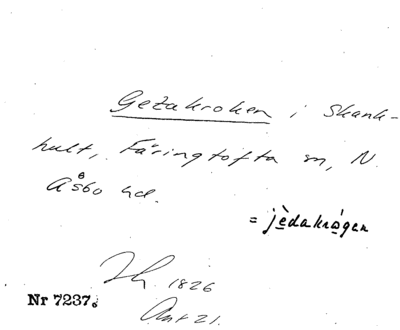 Getakroken i Skänk-
hult, Färingtofta sn, N.
Åsbo hd.
= jèdakrågen
1826
Nr 7237.
Ant 21.